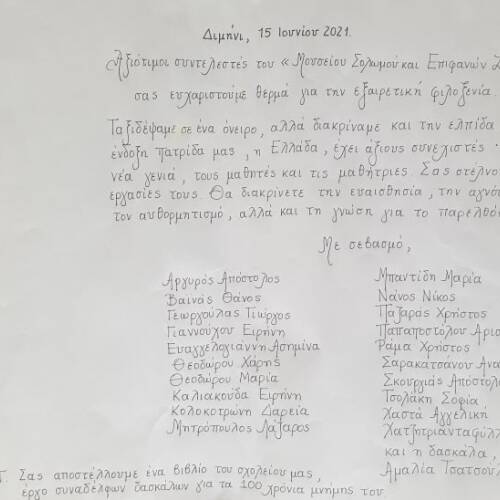 Διμήνι, 15 Ιουνίου 2021.
Αξιότιμοι συντελεστές του « Μουσείου Σολωμού και Επιφανών Ζ
σας ευχαριστούμε θερμά για την εξαιρετική φιλοξενία.
Ταξιδέψαμε σε ένα όνειρο, αλλά διακρίναμε και την ελπίδα
ένδοξη πατρίδα μας, η Ελλάδα, έχει άξιους συνεχιστές·
νέα γενιά, τους μαθητές και τις μαθήτριες. Σας στέλνο
εργασίες τους. Θα διακρίνετε την ευαισθησία, την αγνότ
τον αυθορμητισμό, αλλά και τη γνώση για το παρελθό
Με σεβασμό,
Αργυρός Απόστολος
Βαϊνάς Θάνος
Γεωργούλας Γιώργος
Γιαννούχου Ειρήνη
Ευαγγελογιάννη Ασημίνα
Θεοδώρου Χάρης
Θεοδώρου Μαρία
Καλιακούδα Ειρήνη
Κολοκοτρώνη Δαρεία
Μητρόπουλος Λάζαρος
Μπαντίδη Μαρία
Νάνος Νίκος
Παζαράς Χρήστος
Παπαποστόλου Αρισ
Ράμα Χρήστος
Σαρακατσάνου Ανα
Σκουργιάς Απόστολ
Τσολάκη Σοφία
Χαστά Αγγελική
Χατζητριανταφύλλ
και η δασκάλα,
Αμαλία Τσατσού
Γ. Σας αποστέλλουμε ένα βιβλίο του σχολείου μας,
έργο συναδέλφων δασκάλων για τα 100 χρόνια μνήμης του